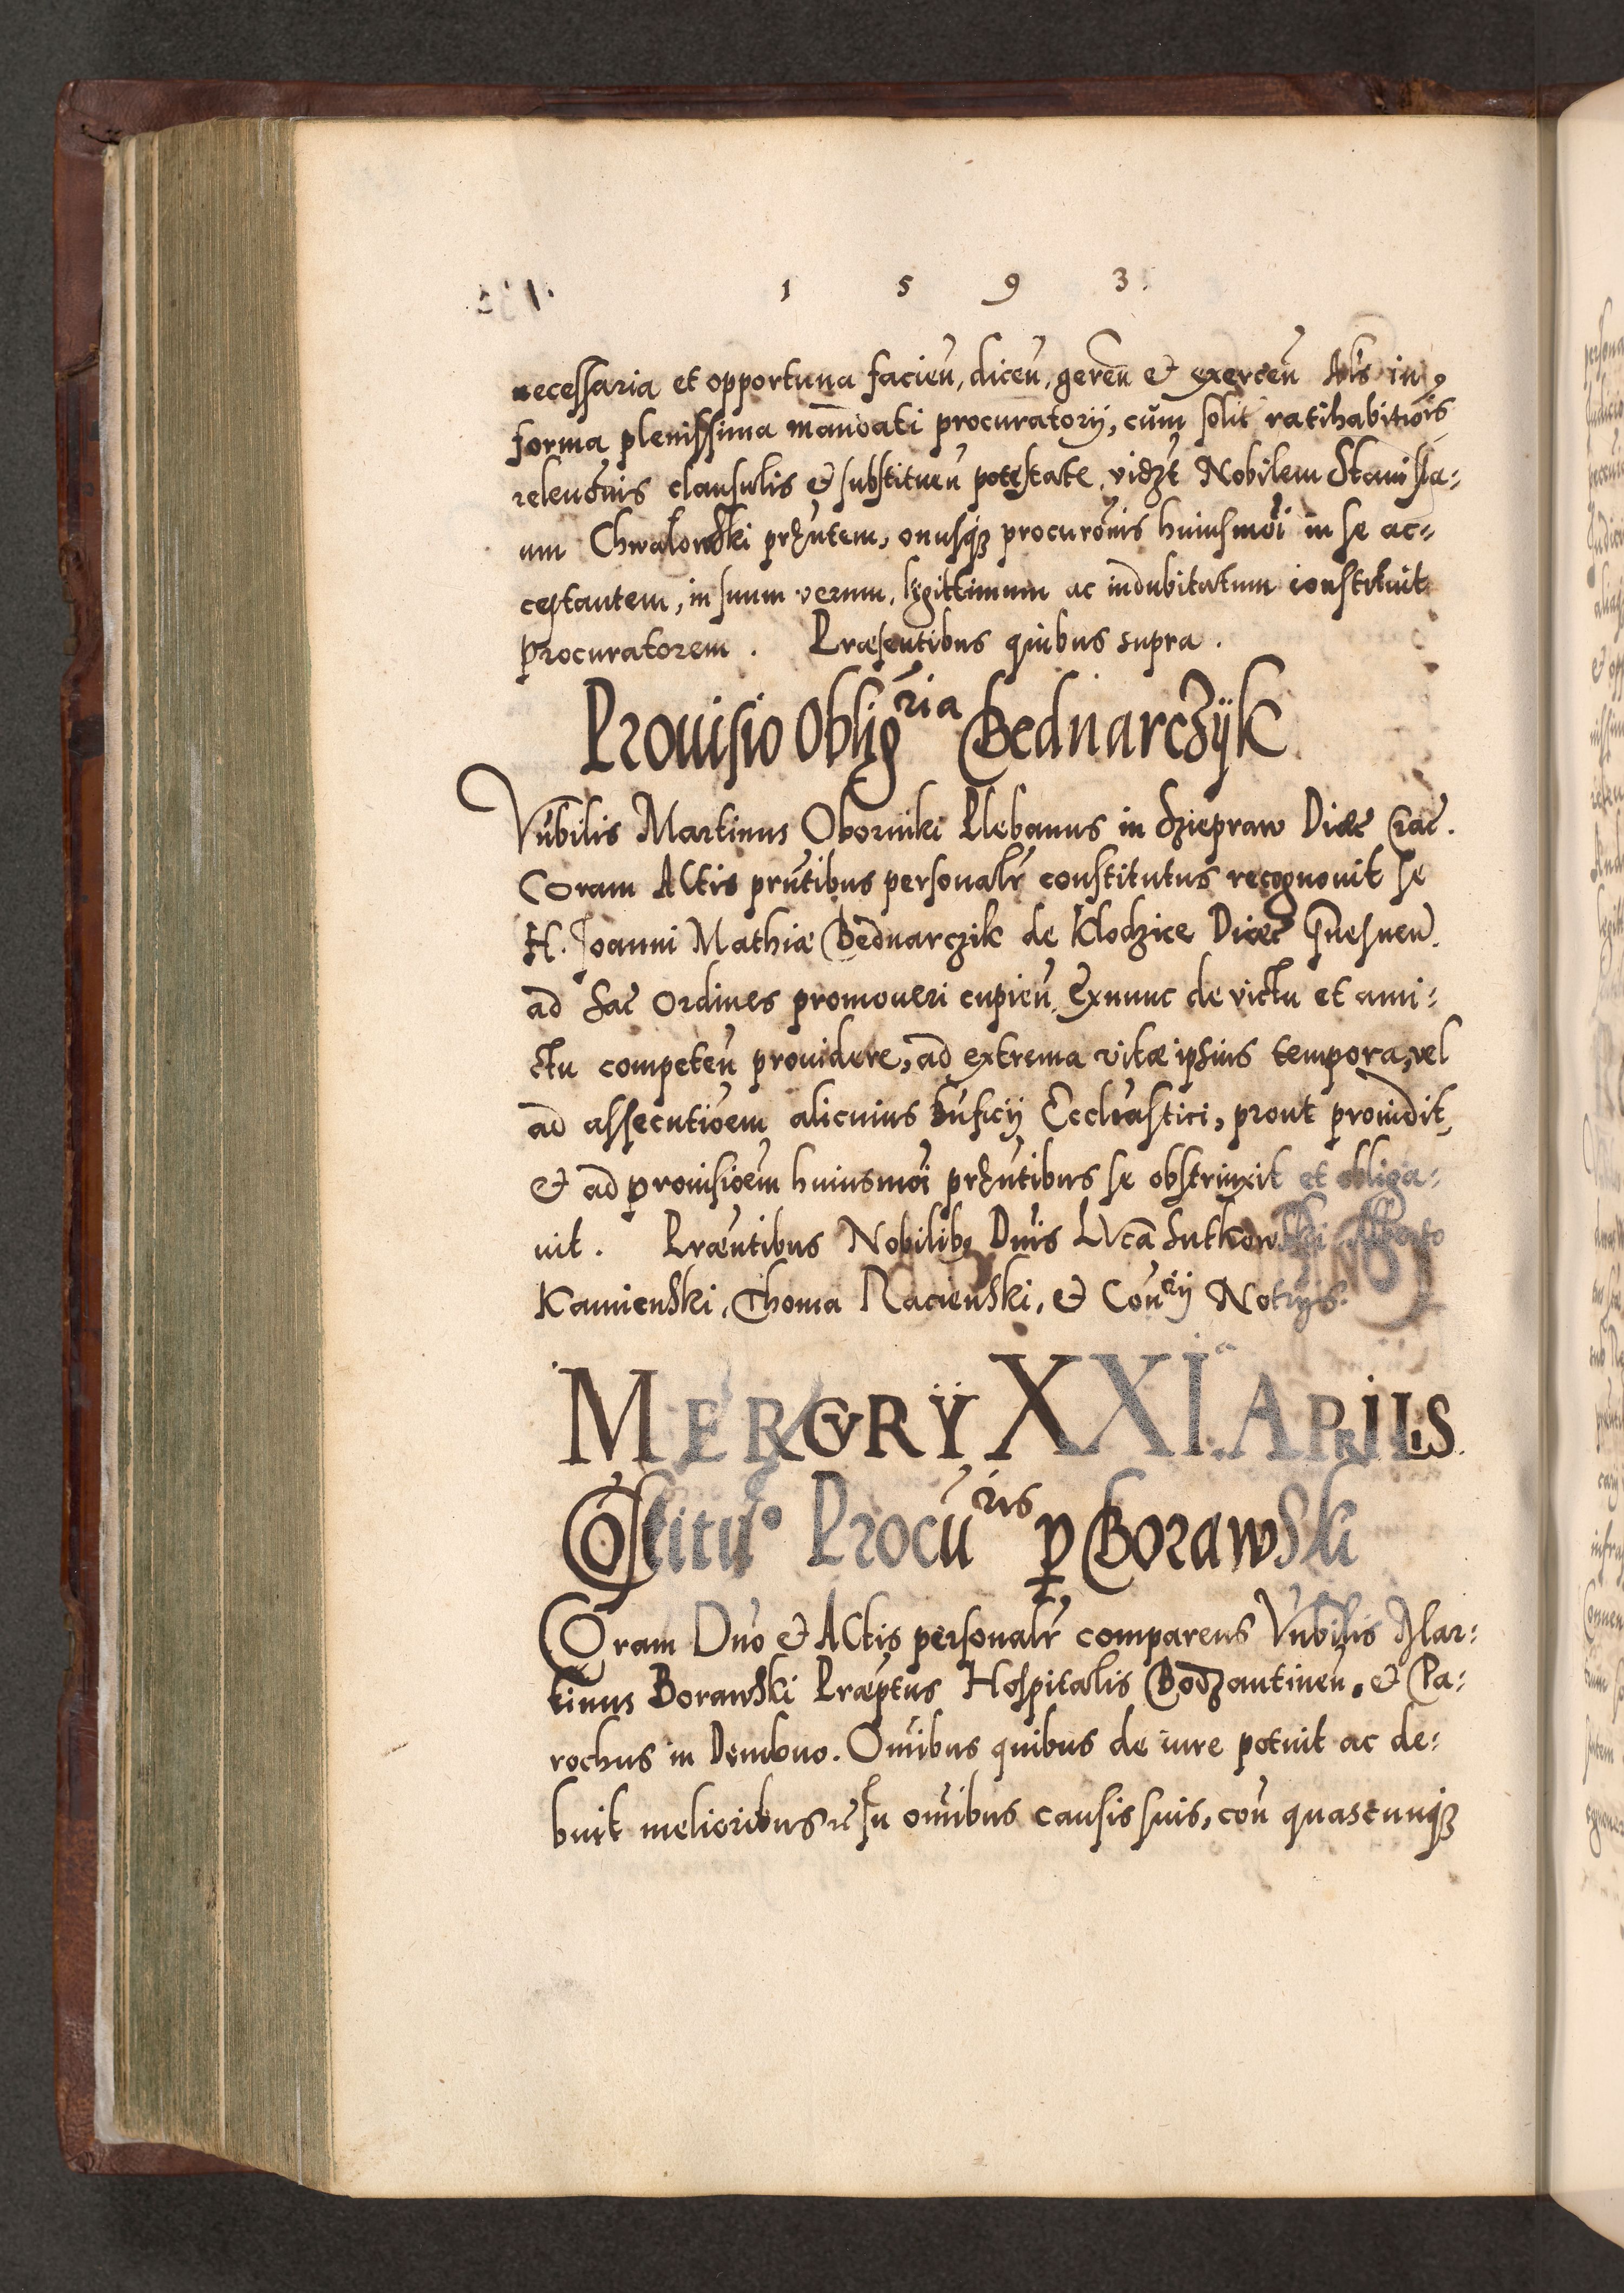 1 5 9 3.
necessaria et opportuna facieñ, diceñ, gereñ & exerceñ Als in
forma plenissima mandati procuratorij, cum solit ratihabitiois
releuõnis clausulis & substitueñ potestate, vidzt Nobilem Stanisla⸗
um Chwalowski prntem, onusq₃ procurõnis huiusmõi in se ac⸗
ceptantem, in suum verum, legittimum ac indubitatum constituit
Procuratorem. Præsentibus quibus supra.
Prouisio Obligria Bednarczÿk
Vnbilis Martinus Oborniki Plebanus in Sziepraw Dioec Crac.
Coram Actis prntibus personalr constitutus recognouit se
H. Joanni Mathiæ Bednarczik de Klodzice Dioec Gnesneñ.
ad Sac Ordines promoueri cupieñ, Exnunc de victu et ami⸗
ctu competeñ prouidere, ad extrema vitæ ipsius tempora, vel
ad assecutioem alicuius bnficij Ecclesiastici, prout prouidit,
& ad prouisioem huiusmõi prntibus se obstrinxit et obliga⸗
uit. Præntibus Nobilib₉ Dnis Luca Sutkowski Alberto
Kamienski, Thoma Racienski, & Conrij Notrijs.
MERCVRŸ XXI APRILIS.
Cõstitu° Procuris p Borawski
Coram Dno & Actis personalr comparens Vnbilis Mar⸗
tinus Borawski Præptus Hospitalis Bodzantineñ, & Pa⸗
rochus in Dembno. Omibus quibus de iure potuit ac de⸗
buit melioribus rc In omibus causis suis, coñ quascunq₃